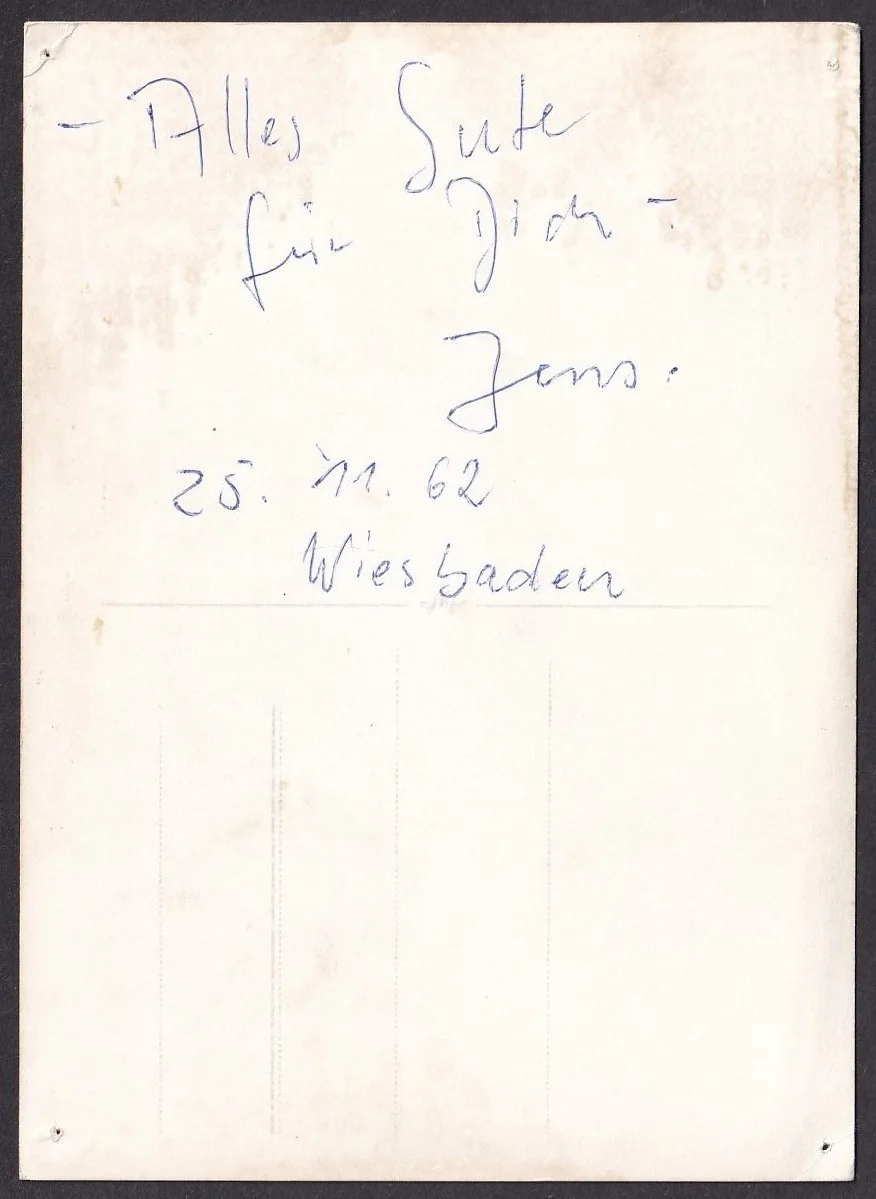 - Alles Gute
für Dich -
Jens.
25. 11. 62
Wiesbaden